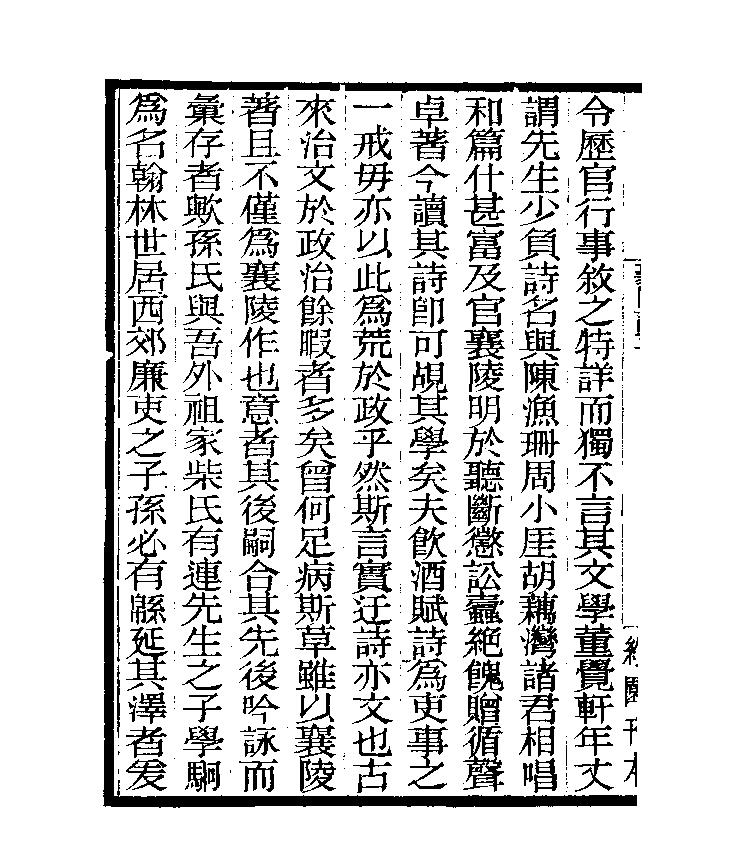 令歷官行事敘之特詳而獨不言其文學董覺軒年丈
謂先生少負詩名與陳漁珊周小厓胡藕灣諸君相唱
和篇什甚富及官襄陵明於聽斷懲訟蠹絕餽贈循聲
卓著今讀其詩卽可覘其學矣夫飮酒賦詩爲吏事之
一戒毋亦以此爲荒於政乎然斯言實迂詩亦文也古
來治文於政治餘暇者多矣曾何足病斯草雖以襄陵
著且不僅爲襄陵作也意者其後嗣合其先後吟詠而
彙存者歟孫氏與吾外祖家柴氏有連先生之子學駉
爲名翰林世居西郊廉吏之子孫必有緜延其澤者爰